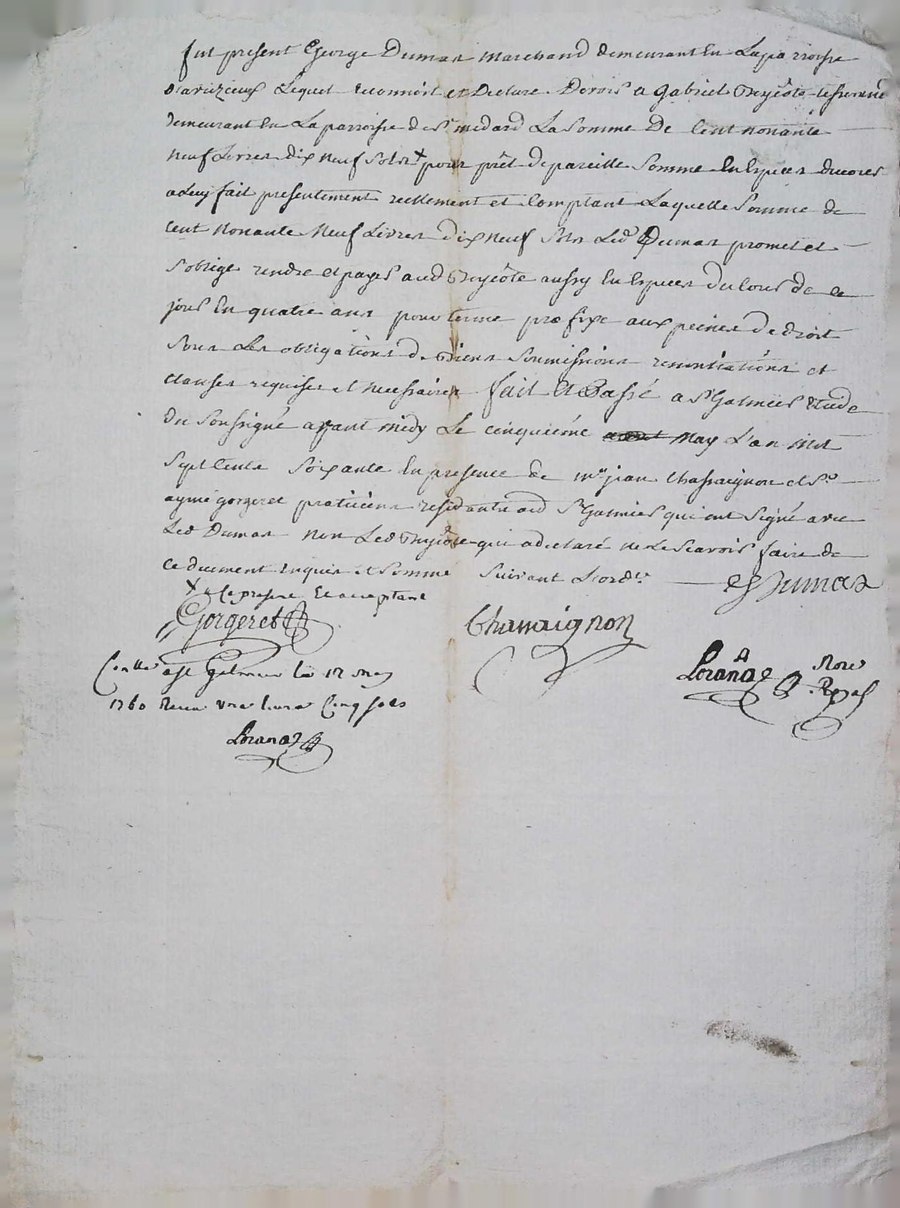 fut present George Dumas Marchand demeurant en La parroisse
d'aveizieux Lequel reconnoit et Declare Devoir a Gabriel
demeurant en La parroisse de St medard La Somme De Cent nonante
neuf Livres Dix neuf Sols x pour prêt de pareille Somme en Espèces du cours
a Luy fait presentement reellement et Comptant Laquelle Somme de
Cent Nonante Neuf Livres Dix neuf Sols Led Dumas promet et
S'oblige rendre et payer aud aussy en Especes du Cours de ce
jour En quatre ans pour terme prefixe aux peines de droit
Sous Les obligations de biens Soumissions renontiations et
Clauses requises et necessaires fait et Passé a St Galmier Etude
du Soussigné avant midy Le cinquieme May L'an Mil
Sept Cents Soixante En presence de me jean Chassaignon et Sr
aymé gorgeret praticiens residants aud St Galmier qui ont Signé avec
Led Dumas non Led qui a declaré ne Le Scavoir faire de
ce duement Enquis et Sommé Suivant L'ord ce Dumas
x a Ce present Et acceptant
Gorgeret
Chassaignon
Lorana Nore Royal
Conllé a St Galmier Le 12 may
1760 Recu une livre Cinq sols
Lorana